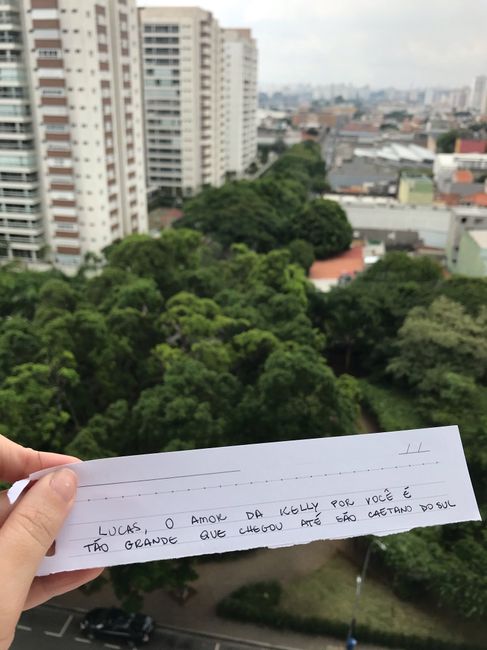 LUCAS, O AMOR DA KELLY POR VOCÊ É
TÃO GRANDE QUE CHEGOU ATÉ SÃO CAETANO DO SUL